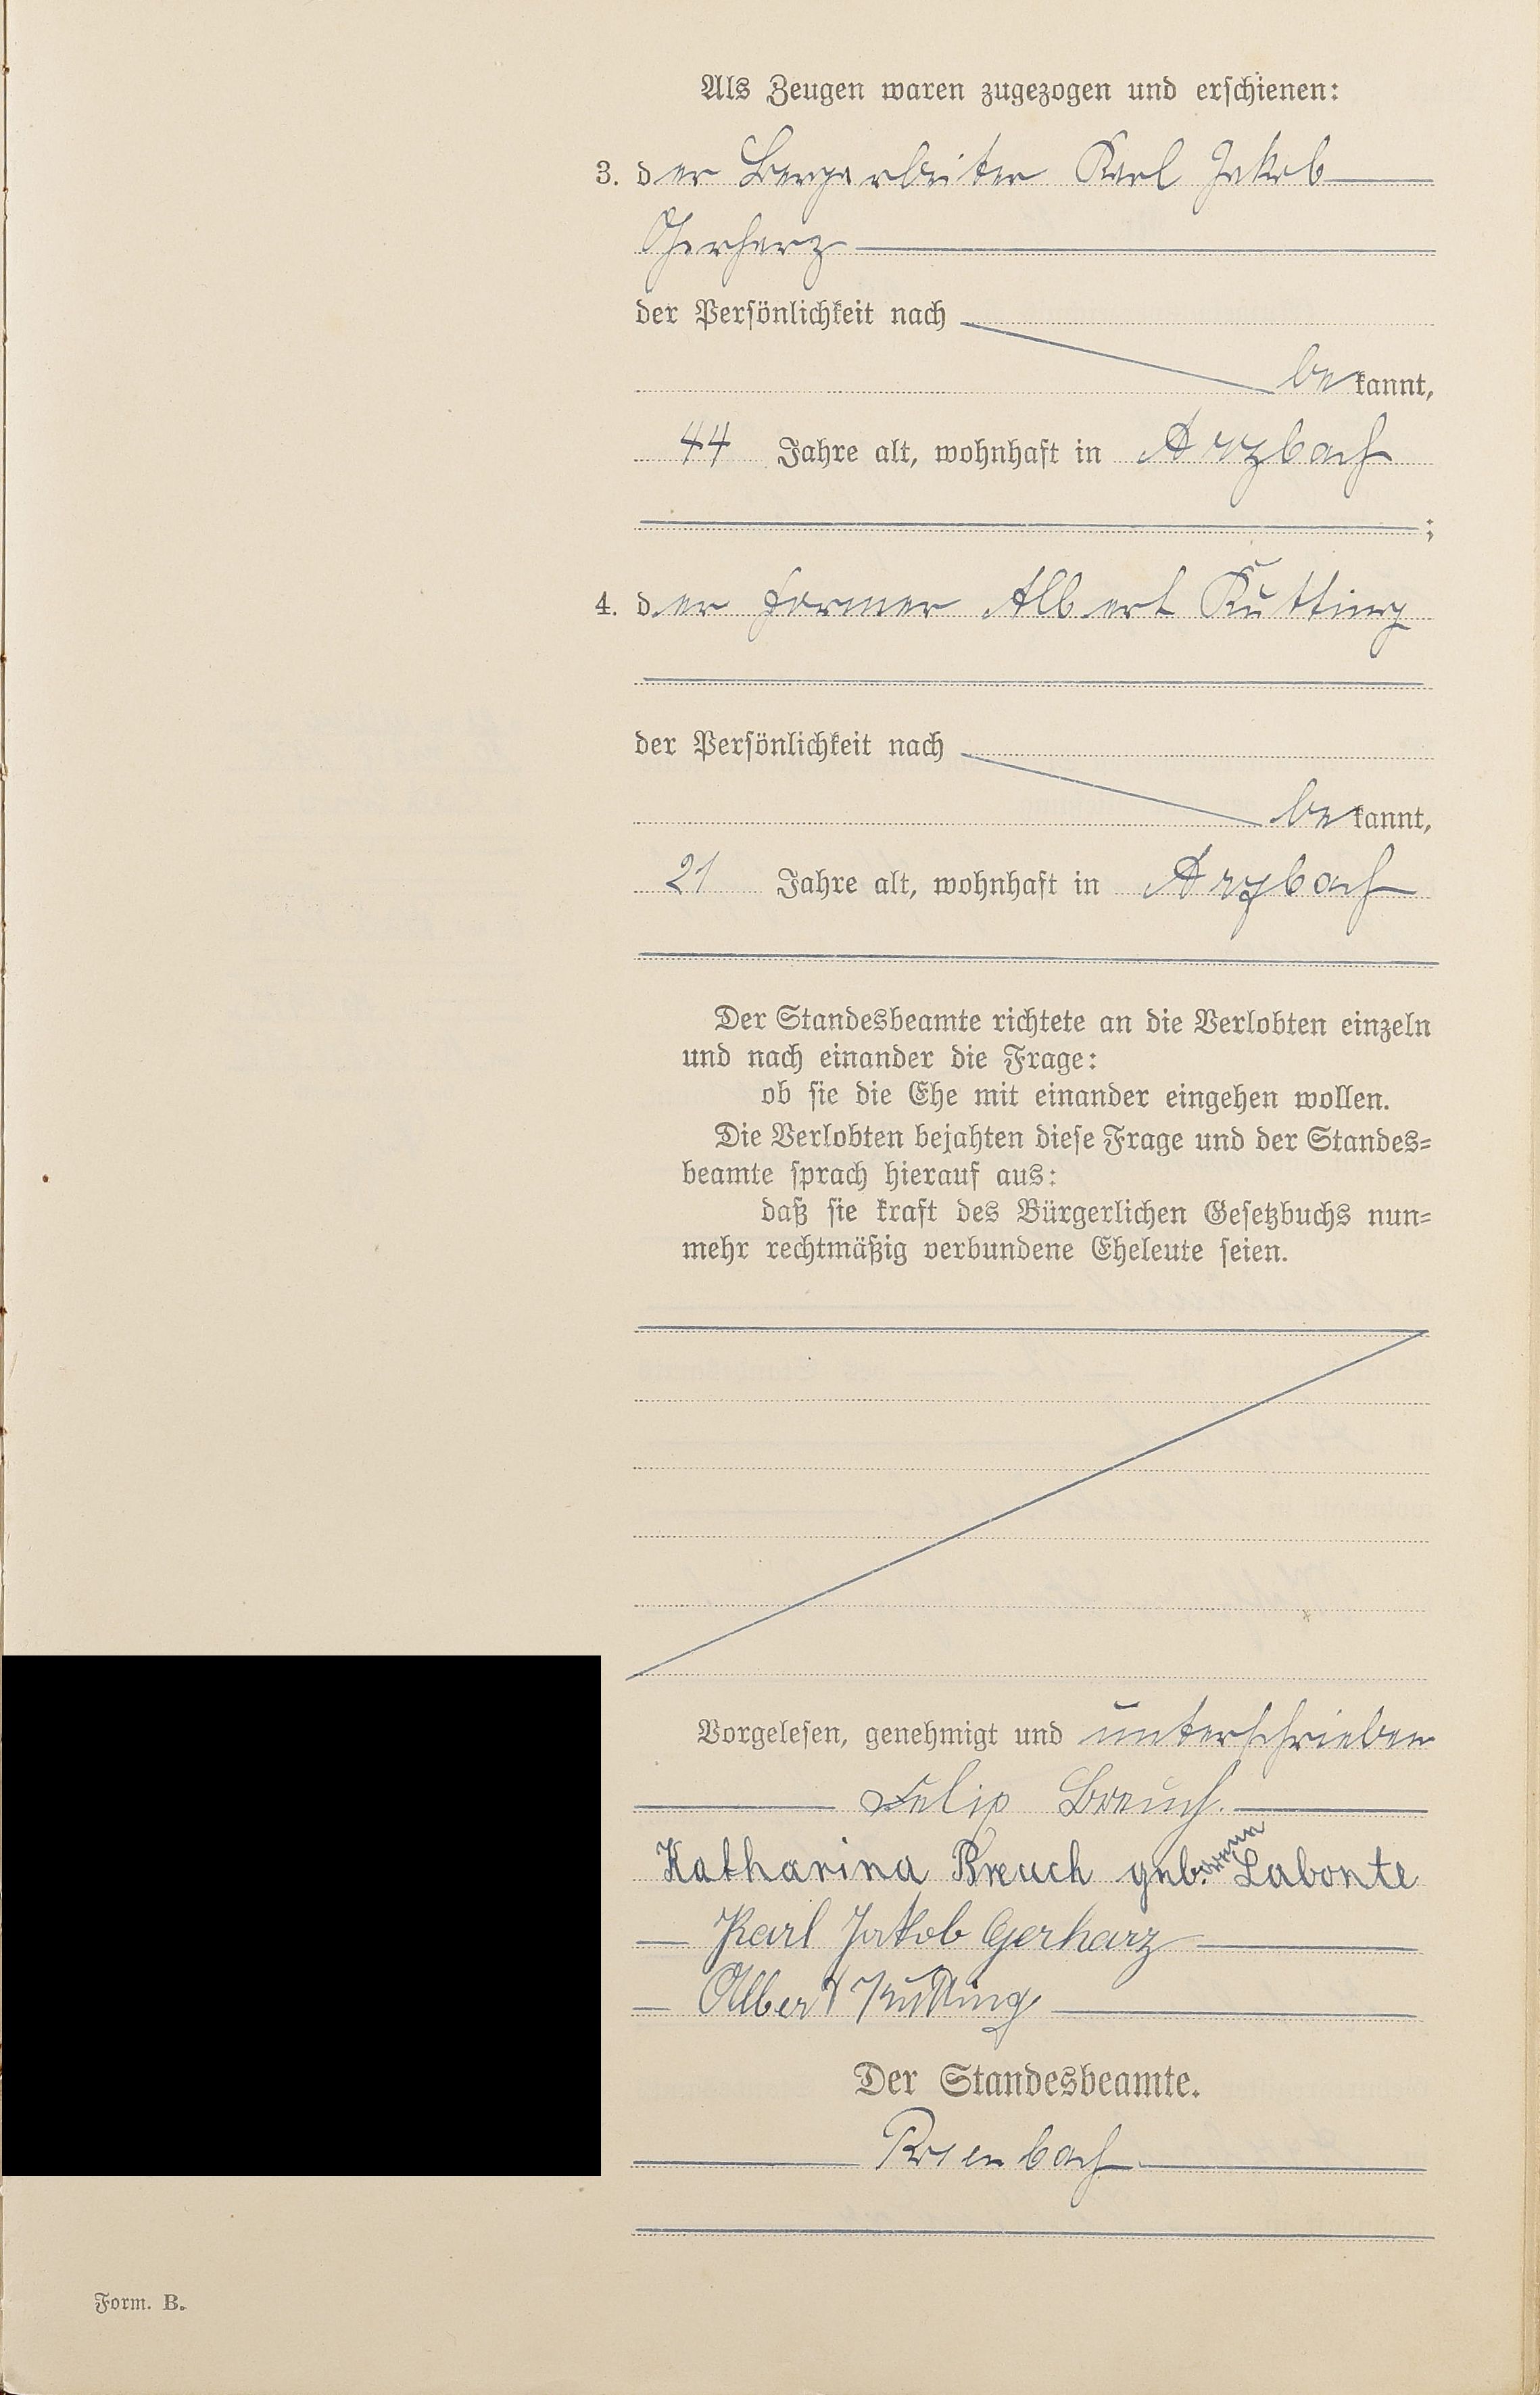 Als Zeugen waren zugezogen und erschienen:
3. der Bergarbeiter Karl Jakob
Gerharz
der Persönlichkeit nach
bekannt,
44 Jahre alt, wohnhaft in Arzbach
;
4. der Former Albert Kutting
der Persönlichkeit nach
bekannt,
21 Jahre alt, wohnhaft in Arzbach
Der Standesbeamte richtete an die Verlobten einzeln
und nach einander die Frage:
ob sie die Ehe mit einander eingehen wollen.
Die Verlobten bejahten diese Frage und der Standes-
beamte sprach hierauf aus:
daß sie kraft des Bürgerlichen Gesetzbuchs nun-
mehr rechtmäßig verbundene Eheleute seien.
Vorgelesen, genehmigt und unterschrieben
Breuch.
Katharina Breuch geb. Labonte
Karl Jakob Gerharz
Albert Kutting
Der Standesbeamte.
Form. B.